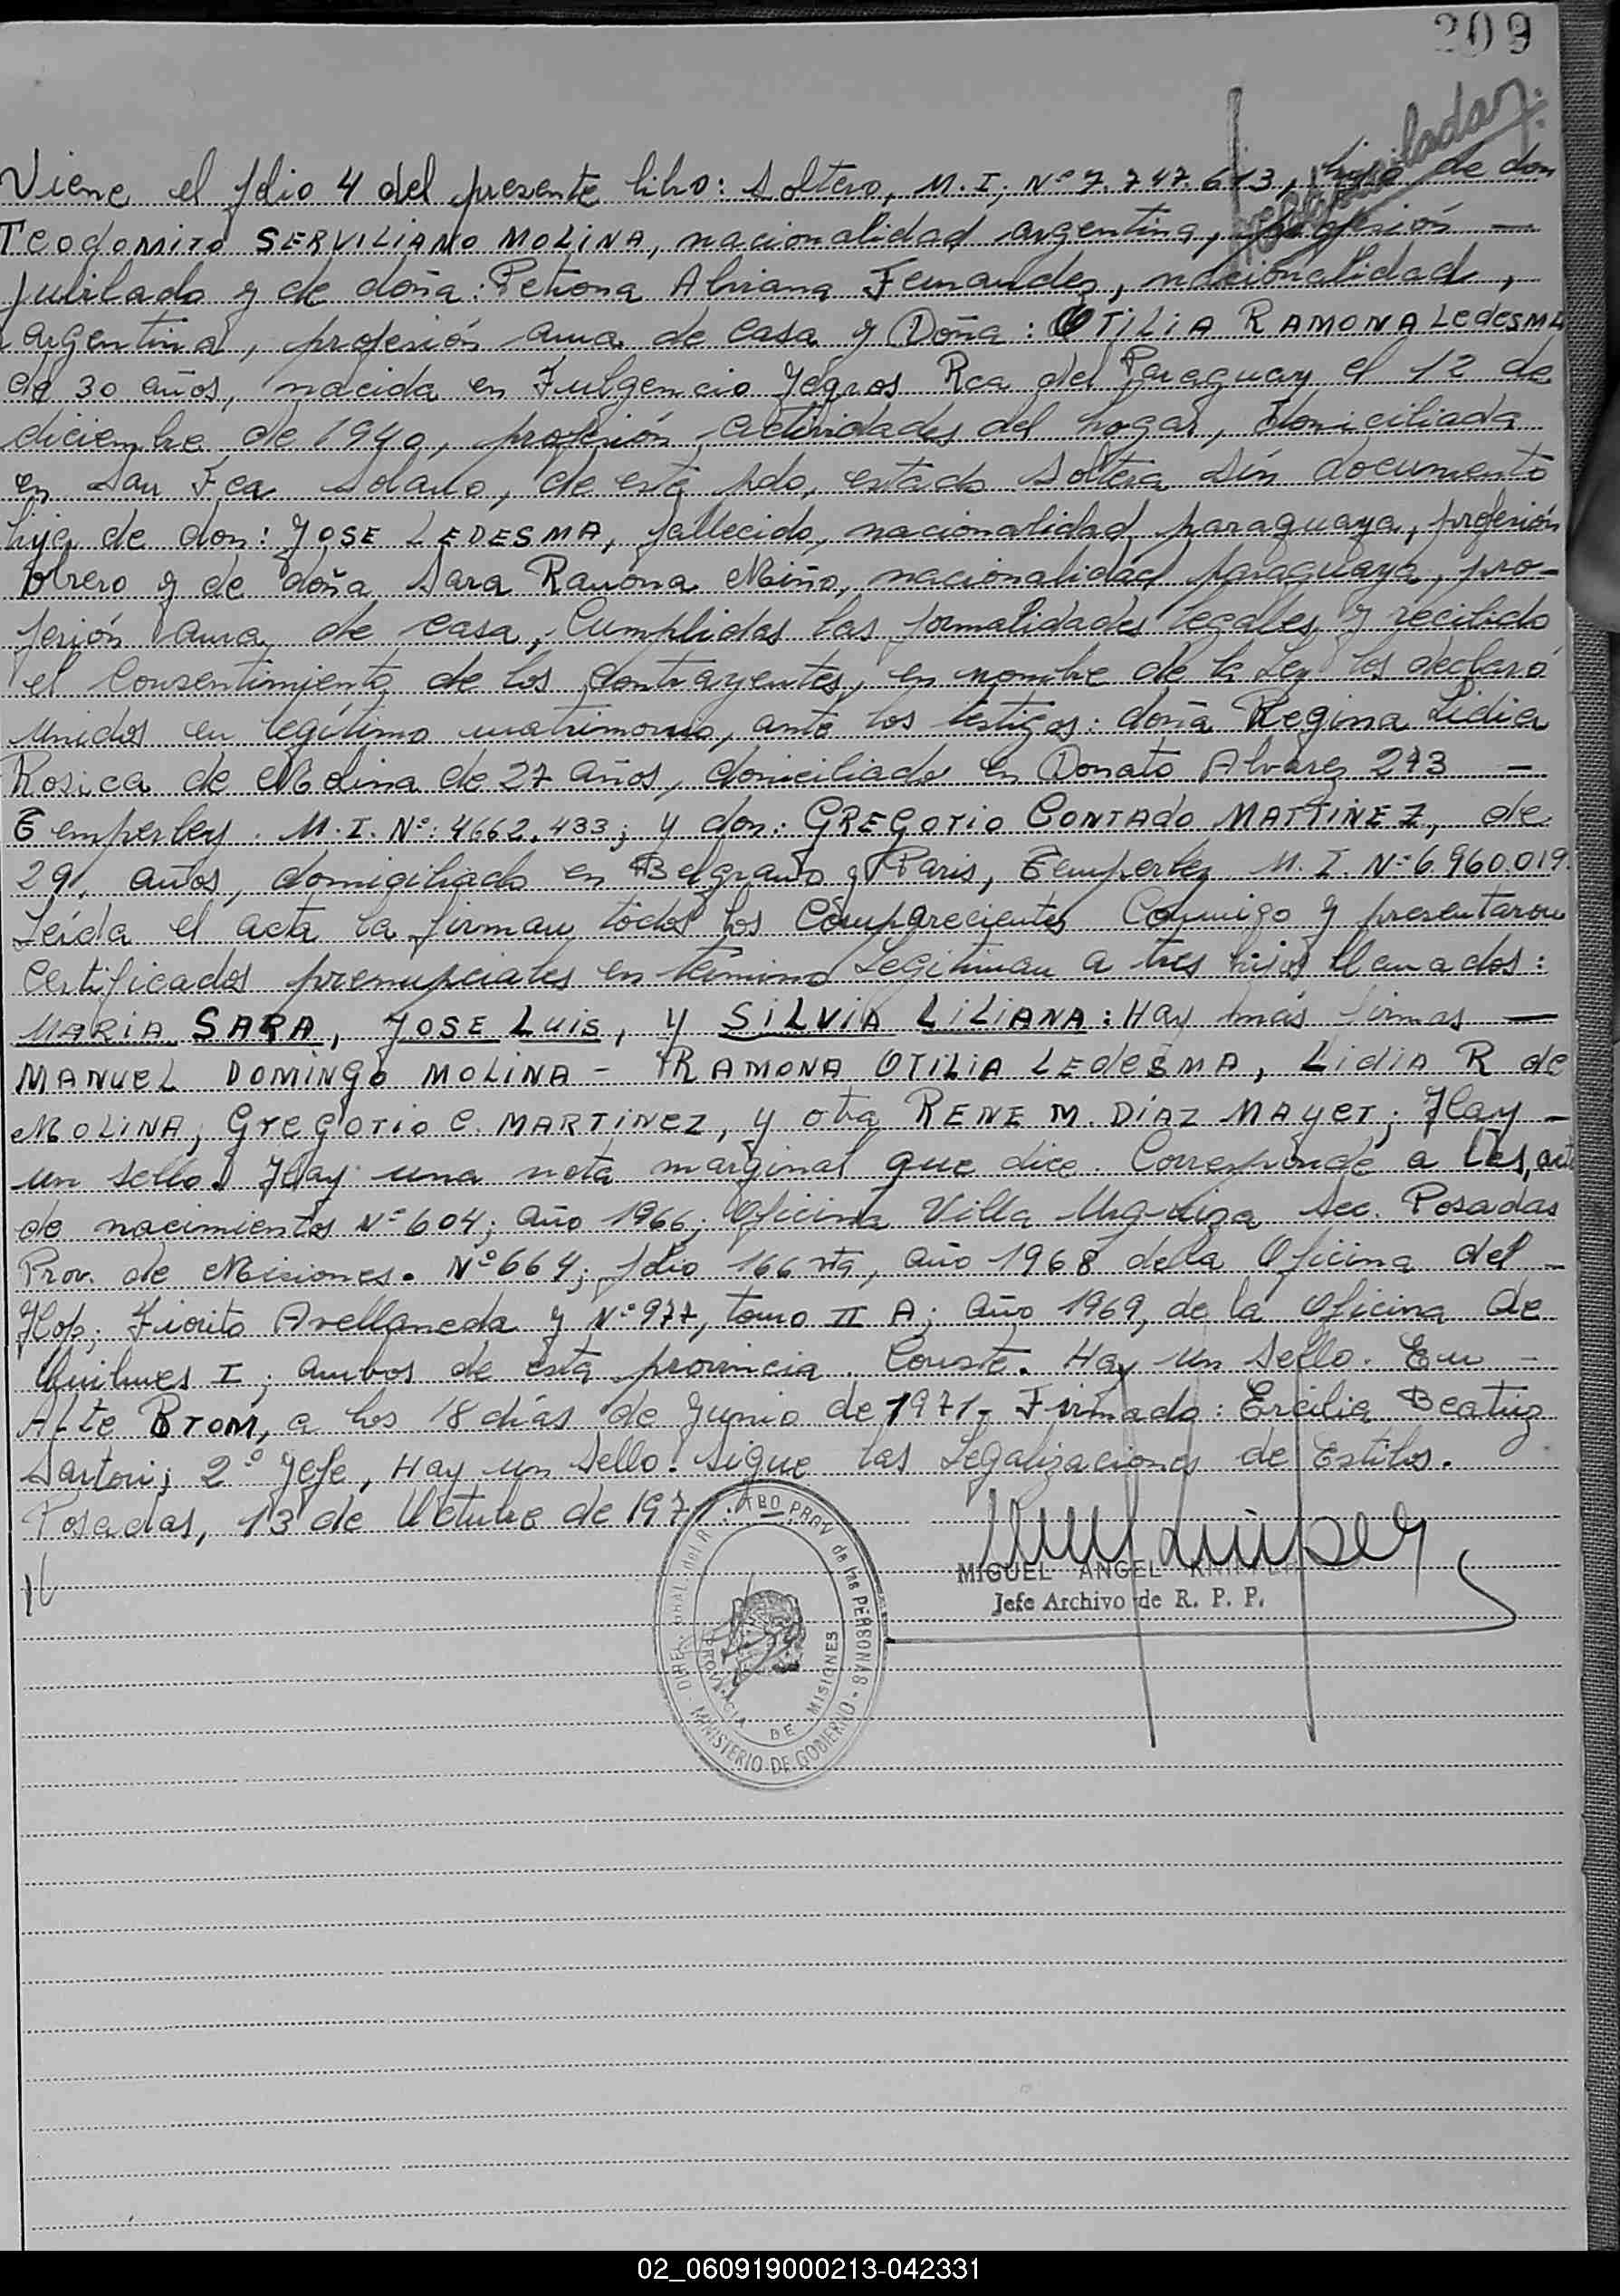 209
Viene el folio 4 del presente libro: Soltero, M.I. Nº 7.747.613, hijo de don
Teodomiro SERVILIANO MOLINA, nacionalidad argentina, profesión —
jubilado y de doña: Petrona Albiana Fernandez, nacionalidad,
argentina, profesión ama de casa y Doña: OTILIA RAMONA LedesMA
de 30 años, nacida en Fulgencio Yegros Rca del Paraguay el 12 de
diciembre de 1940, profesión actividades del hogar, domiciliada
en San Fco Solano, de este pdo, estado Soltera Sin documento
hija de don: JOSE LEDESMA, fallecido, nacionalidad paraguaya, profesión
obrero y de doña Sara Ramona Miño, nacionalidad paraguaya, pro-
fesión ama de casa, Cumplidas las formalidades legales y recibido
el Consentimiento de los contrayentes, en nombre de la Ley los declaró
Unidos en legítimo matrimonio, ante los testigos: doña Regina Lidia
Rosica de Molina de 27 años, domiciliado en Donato Alvarez 273 —
Temperley. M.I. Nº: 4662.433; y don: GREGOrio CONrAdo MArTiNEZ, de
29, años, domiciliado en Belgrano y Paris, Temperley M.I. Nº 6.960.019.
Leída el acta la firman todos los Comparecientes Conmigo y presentaron
Certificados prenupciales en término Legitiman a tres hijos llamados:
MARIA SARA, JOSE LUIS, y SILVIA LILIANA: Hay más firmas —
MANUEL DOMINGO MOLINA - RAMONA OTILIA LEdESMA, LidiA R de
MOLINA, GreGOrio C. MARTINEZ, y otra RENE M. DÍAZ MAyer; Hay —
un sello. Hay una nota marginal que dice. Corresponde a las, acta
de nacimientos Nº 604; año 1966; Oficina Villa Urquiza Sec. Posadas
Prov. de Misiones. Nº 664; folio 166 vta, año 1968 de la Oficina del —
Hop; Fiorito Avellaneda y Nº 977, tomo II A; año 1969, de la Oficina de
Quilmes I; ambos de esta provincia. Conste. Hay un Sello. En —
Alte Brom, a los 18 días de Junio de 1971- Firmado: Ercilia Beatriz
Sartori; 2º Jefe, Hay un sello. Sigue las Legalizaciones de Estilos.
Posadas, 13 de Octubre de 1971.
MIGUEL ANGEL
Jefe Archivo de R. P. P.
PROV. de las PERSONAS - MINISTERIO DE GOBIERNO
PROVINCIA DE MISIONES
02_060919000213-042331